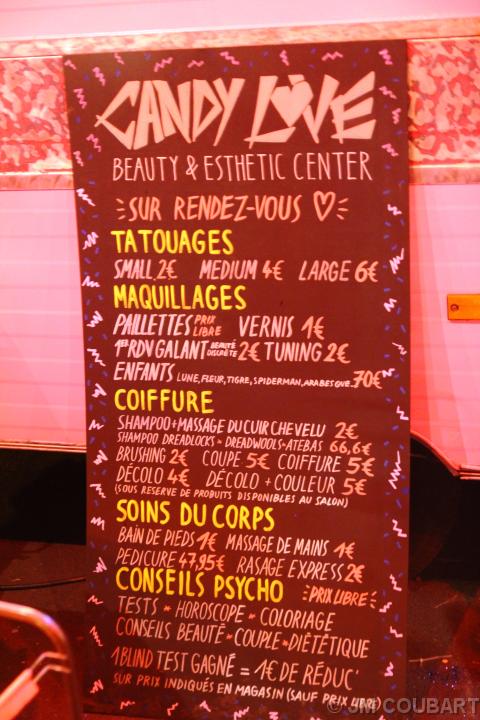 CANDY LOVE
BEAUTY & ESTHETIC CENTER
SUR RENDEZ-VOUS
TATOUAGES
SMALL 2€ MEDIUM 4€ LARGE 6€
MAQUILLAGES
PAILLETTES PRIX LIBRE VERNIS 1€
1ER RDV GALANT BEAUTÉ DISCRÈTE 2€ TUNING 2€
ENFANTS LUNE, FLEUR, TIGRE, SPIDERMAN, ARABESQUE. 70€
COIFFURE
SHAMPOO+MASSAGE DU CUIR CHEVELU 2€
SHAMPOO DREADLOCKS * DREADWOOLS * ATEBAS 66,6€
BRUSHING 2€ COUPE 5€ COIFFURE 5€
DÉCOLO 4€ DÉCOLO + COULEUR 5€
(SOUS RESERVE DE PRODUITS DISPONIBLES AU SALON)
SOINS DU CORPS
BAIN DE PIEDS 1€ MASSAGE DE MAINS 1€
PEDICURE 47,95€ RASAGE EXPRESS 2€
CONSEILS PSYCHO PRIX LIBRE
TESTS * HOROSCOPE * COLORIAGE
CONSEILS BEAUTÉ * COUPLE * DIÉTÉTIQUE
1 BLIND TEST GAGNÉ = 1€ DE RÉDUC'
SUR PRIX INDIQUÉS EN MAGASIN (SAUF PRIX LIBRE)
© JM COUBART